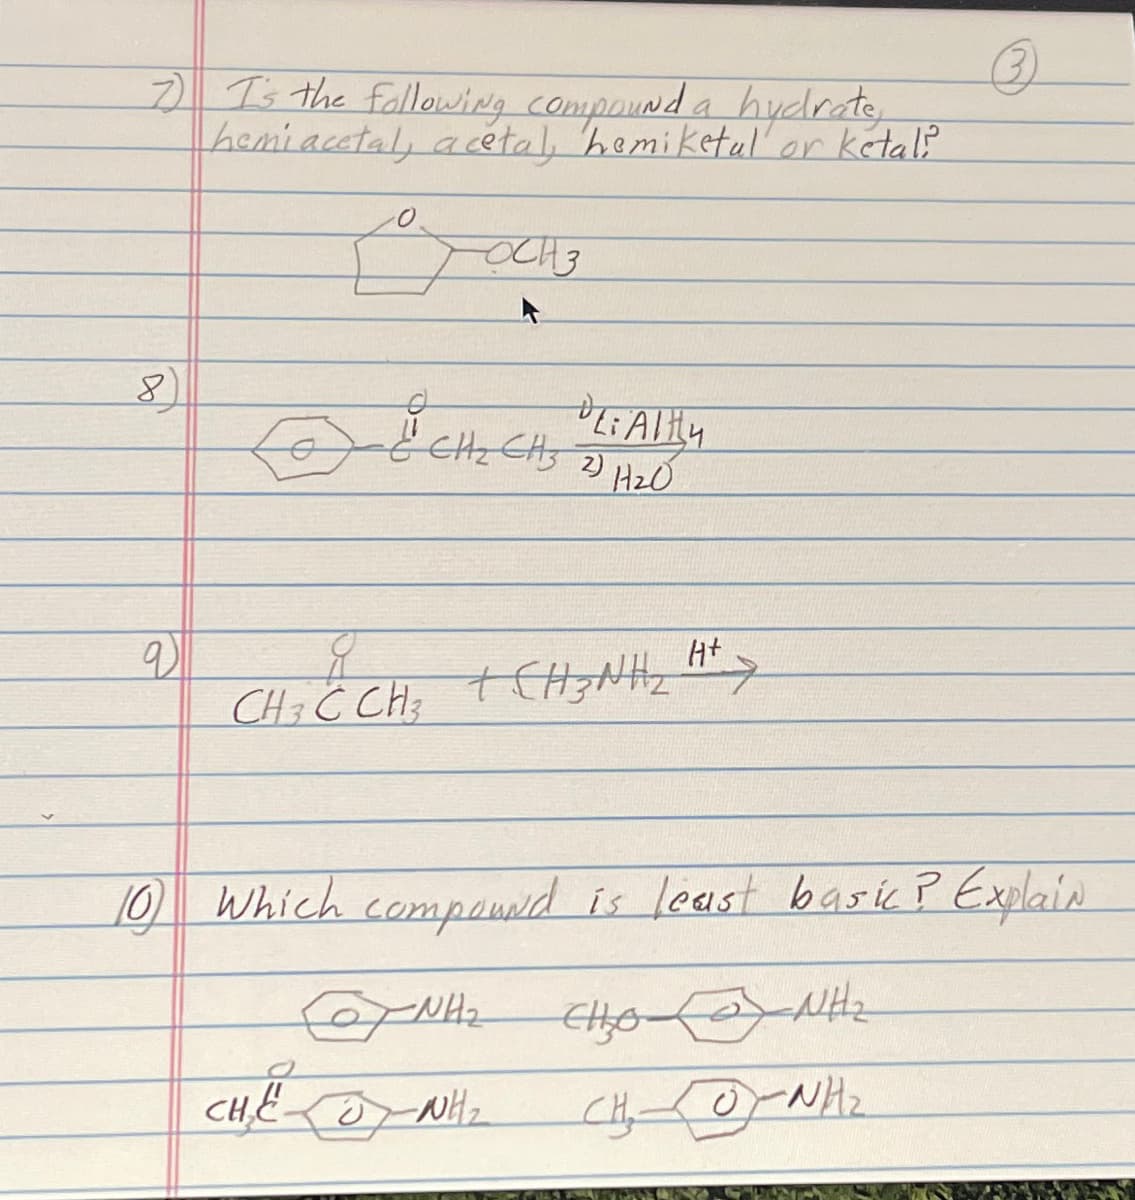 3
7) Is the following compound a hydrate,
hemiacetal, acetal, hemiketal or ketal?
O
OCH3
8)
O
C CH2 CH3
1) LiAlH4
2) H2O
9)
O
CH3 C CH3 + CH3NH2 H+
10) Which compound is least basic? Explain
NH2 CH3O NH2
O
CH3C NH2 CH3 NH2